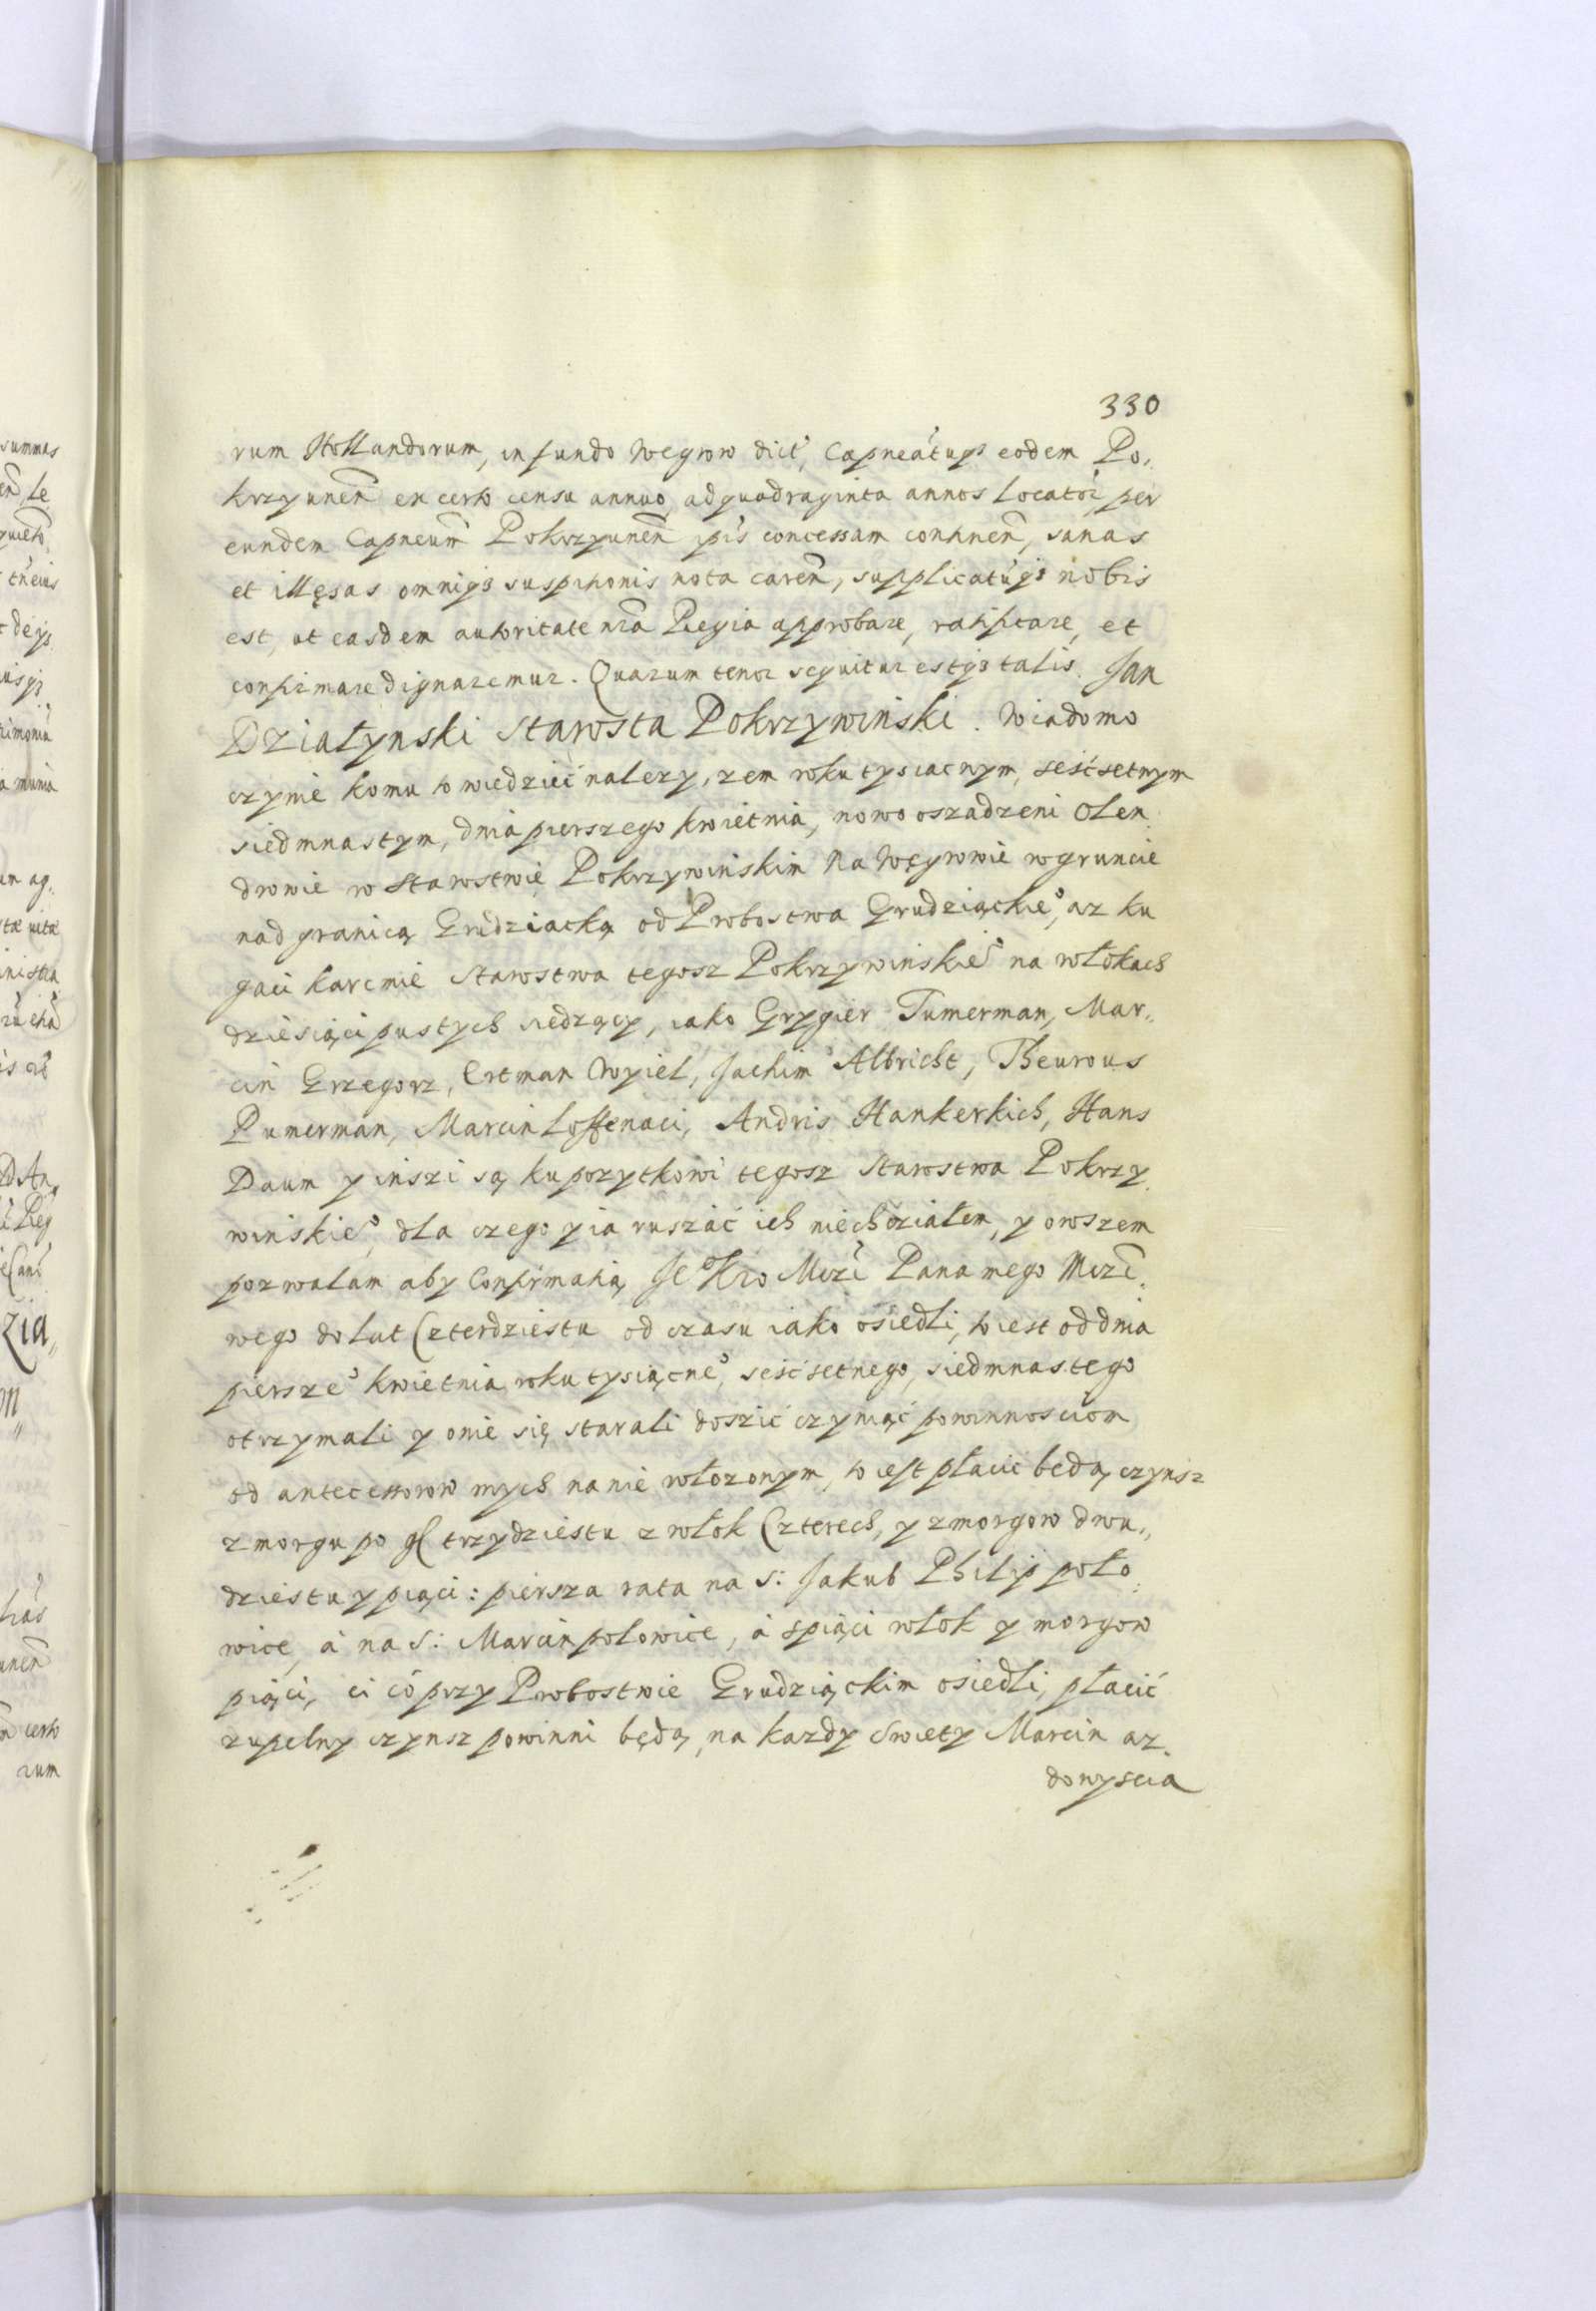 330
rum Hollandorum, in fundo Wegrow dict, Capneatuqз eodem Po,
krzyunen̄ en certo censu annuo, ad quadraginta annos locator, per
eundem Capneum̄ Pokrzyunen̄ ip̄is concessam continen̄, sanas
et illęsas omniqз suspitionis nota caren̄, supplicatuqз nobis
est, ut easdem autoritate nr̄a Regia approbare, ratificare, et
confirmare dignaremur. Quarum tenor sequitur estqз talis. Jan
Działynski Starosta Pokrzywinski. Wiadomo
czynie komu to wiedzieć nalezy, zem roku tysiacnym, seśćsetnym
siedmnastym, dnia pierszego kwietnia, nowo oszadzeni Olen
drowie w starostwie Pokrzywinskim na Węgrowie w gruncie
nad granicą Grudziacką od Probostwa Grudziąckie°, az ku
gaci karcmie Starostwa tegosz Pokrzywinskie° na włokach
dziesiąci pustych siedzący, iako Grygier Tumerman, Mar„
cin Grzegorz, Ertman Wyiel, Jachim Albricht, Theurous
Pumerman, Marcin Lossenaci, Andris Hankerkich, Hans
Daum y inszi są ku pozytkowi tegosz Starostwa Pokrzy
winskie°, dla czego y ia ruszać ich niechciałem, y owszem
pozwalam aby Confirmatią Je° Kro Mczi Pana mego Mczi
wego do lat Czterdziestu od czasu iako osiedli, to iest od dnia
piersze° kwietnia roku tysiącne°, seśćsetnego, siedmnastego
otrzymali y onie się starali doszić czyniąć powinnosciom
od antecessorow mych na nie włozonym, to iest płacić będą czynsz
z morgu po gl trzydziestu z włok Czterech, y z morgow dwu„
dziestu y piąci: piersza rata na s: Jakub Philip poło
wice, á na S: Marcin polowice, á s piąci włok y morgow
piąci, ci co przy Probostwie Grudziąckim osiedli, płacić
zupelny czynsz powinni będą, na kazdy swiety Marcin az
do wyscia